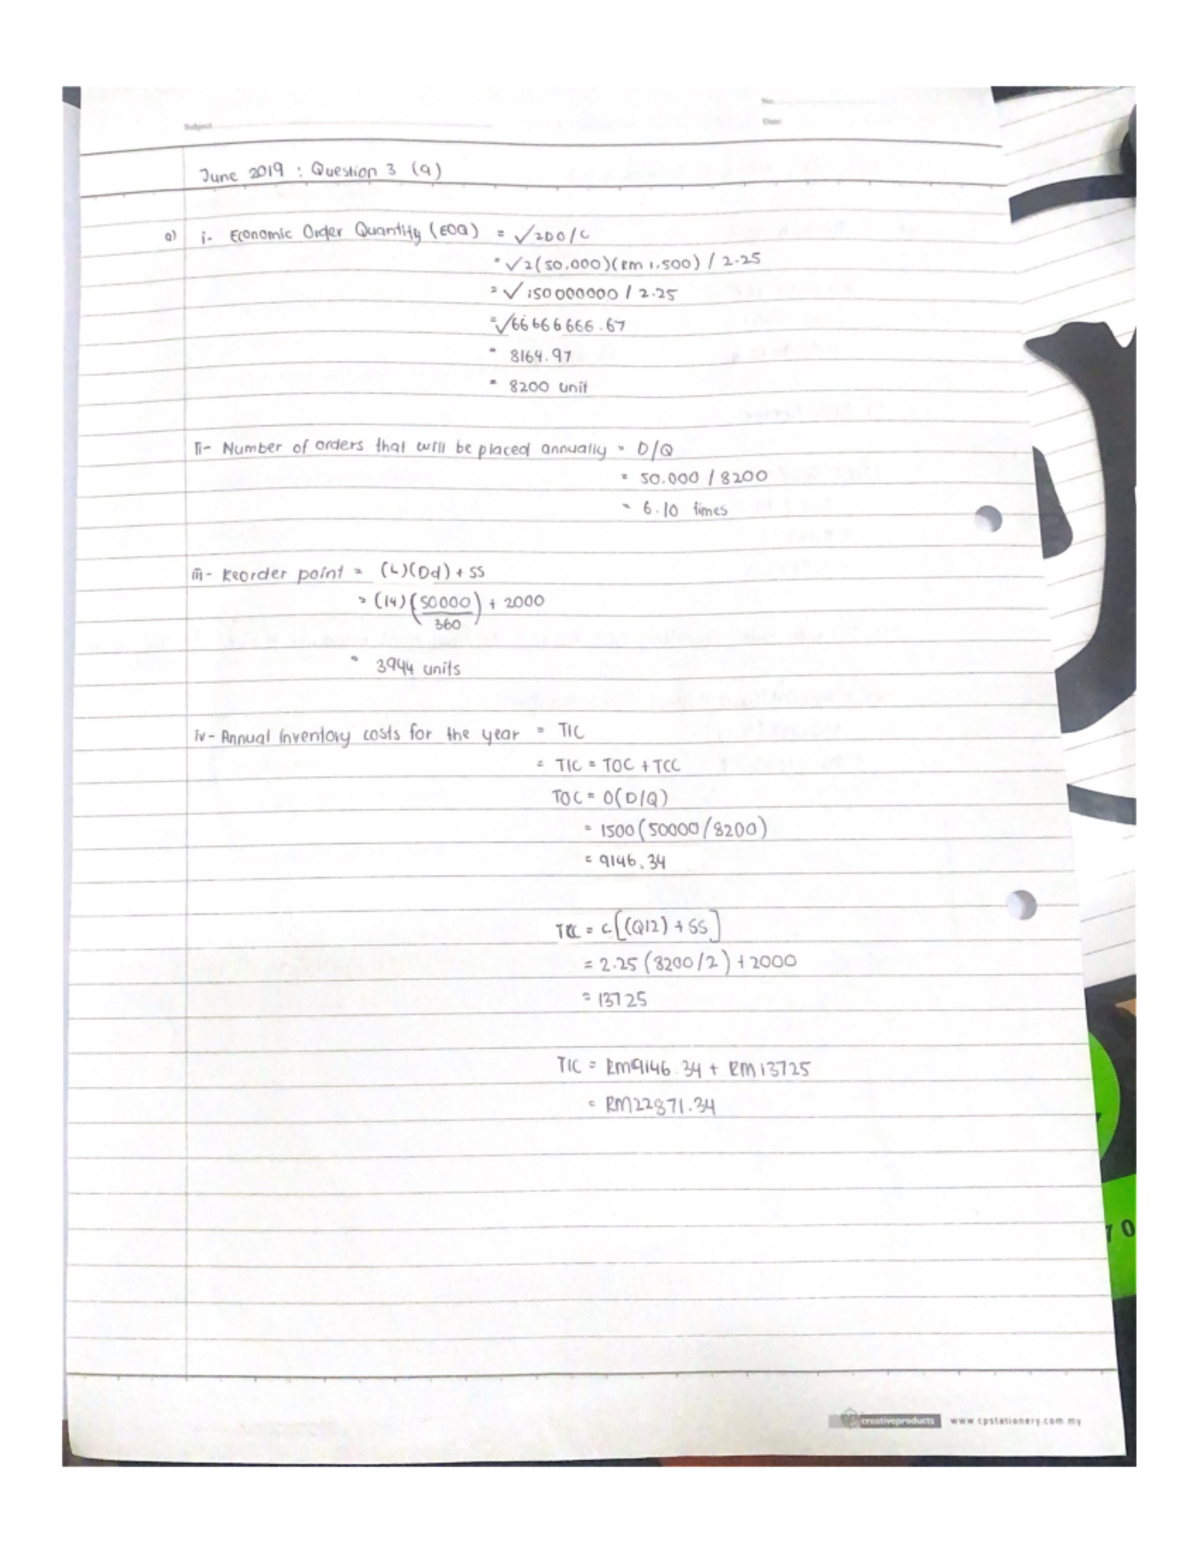 No:
Subject
Date:
June 2019 : Question 3 (a)
a) i- Economic Order Quantity (EOQ) = √2DO/C
= √2(50.000)(RM 1.500) / 2.25
= √150000000 / 2.25
= √66666666.67
= 8164.97
= 8200 unit
ii- Number of orders that will be placed annually = D/Q
= 50.000 / 8200
= 6.10 times
iii- Reorder point = (L)(Dd) + SS
= (14)(50000/360) + 2000
= 3944 units
iv- Annual inventory costs for the year = TIC
= TIC = TOC + TCC
TOC = O(D/Q)
= 1500(50000/8200)
= 9146.34
TCC = C[(Q/2) + SS]
= 2.25(8200/2) + 2000
= 13725
TIC = RM9146.34 + RM13725
= RM22871.34
70
creativeproducts www.cpstationery.com.my